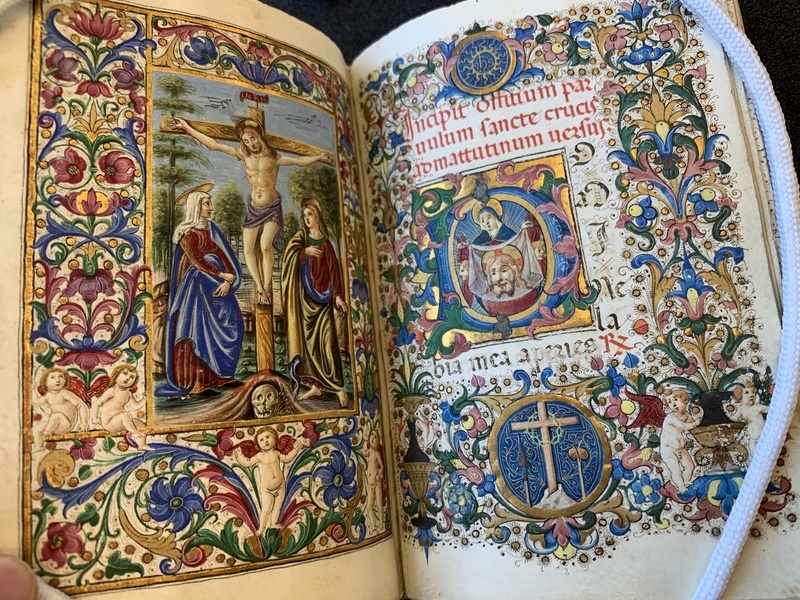 INRI
Incipit offitium par
uulum sancte crucis
ad mattutinum uersus.
ne
la
bia mea aperies